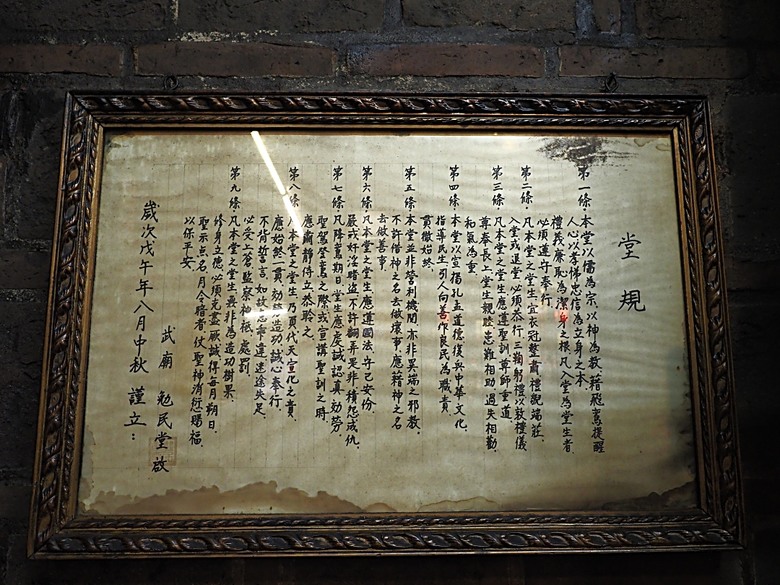 堂規
第一條 本堂以儒為宗以神為教藉飛鸞提醒
人心以孝悌忠信為立身之本
禮義廉恥為潔身之根凡入堂為堂生者
必須遵守奉行
第二條 凡本堂之堂生宜衣冠整肅禮貌端莊
入堂或退堂必須恭行三鞠躬禮以敦禮儀
第三條 凡本堂之堂生應遵聖訓尊師重道
尊奉長上堂生親睦患難相助過失相勸
和氣為重
第四條 本堂以宣揚孔孟道德復興中華文化
指導民生引人向善作良民為職責
貫徹始終
第五條 本堂並非營利機關亦非異端之邪教
不許借神之名去做壞事應藉神之名
去做善事
第六條 凡本堂之堂生應遵國法守己安份
嚴戒奸淫賭盜不許翻弄是非積怨成仇
第七條 凡降鸞朔日堂生應虔誠認真効勞
聖駕登鸞之際或宣講聖訓之時
應肅靜侍立恭聆之
第八條 凡本堂之堂生乃負代天宣化之責
應始終一貫効勞造功誠心奉行
不背誓言如故意乖違迷途失足
必受上蒼監察神祇處罰
第九條 凡本堂之堂生無非為造功樹果
修身立德必須克盡厥誠得每月朔日
聖示點名月令者仗聖神消愆賜福
以保平安
歲次戊午年八月中秋 謹立:
武廟 勉民堂 啟